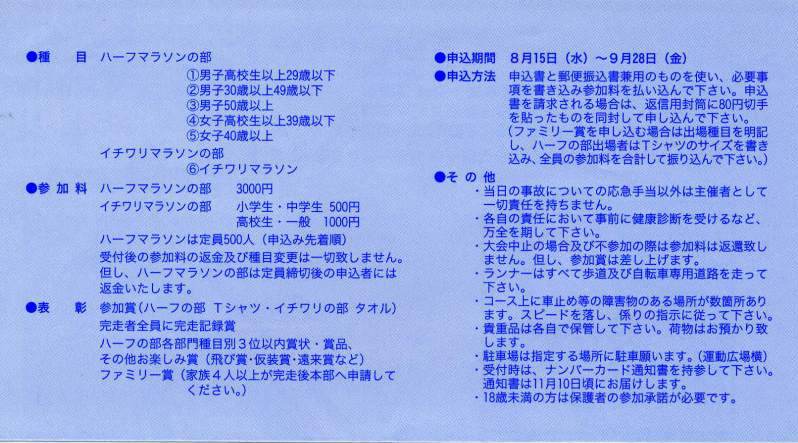 ●種　目　ハーフマラソンの部
①男子高校生以上29歳以下
②男子30歳以上49歳以下
③男子50歳以上
④女子高校生以上39歳以下
⑤女子40歳以上
イチワリマラソンの部
⑥イチワリマラソン
●参加料　ハーフマラソンの部　3000円
イチワリマラソンの部　小学生・中学生 500円
高校生・一般　1000円
ハーフマラソンは定員500人（申込み先着順）
受付後の参加料の返金及び種目変更は一切致しません。
但し、ハーフマラソンの部は定員締切後の申込者には
返金いたします。
●表　彰　参加賞（ハーフの部 Ｔシャツ・イチワリの部 タオル）
完走者全員に完走記録賞
ハーフの部各部門種目別３位以内賞状・賞品、
その他お楽しみ賞（飛び賞・仮装賞・遠来賞など）
ファミリー賞（家族４人以上が完走後本部へ申請して
ください。）
●申込期間　８月15日（水）～９月28日（金）
●申込方法　申込書と郵便振込書兼用のものを使い、必要事
項を書き込み参加料を払い込んで下さい。申込
書を請求される場合は、返信用封筒に80円切手
を貼ったものを同封して申し込んで下さい。
（ファミリー賞を申し込む場合は出場種目を明記
し、ハーフの部出場者はＴシャツのサイズを書き
込み、全員の参加料を合計して振り込んで下さい。）
●その他
・当日の事故についての応急手当以外は主催者として
一切責任を持ちません。
・各自の責任において事前に健康診断を受けるなど、
万全を期して下さい。
・大会中止の場合及び不参加の際は参加料は返還致し
ません。但し、参加賞は差し上げます。
・ランナーはすべて歩道及び自転車専用道路を走って
下さい。
・コース上に車止め等の障害物のある場所が数箇所あり
ます。スピードを落し、係りの指示に従って下さい。
・貴重品は各自で保管して下さい。荷物はお預かり致
します。
・駐車場は指定する場所に駐車願います。（運動広場横）
・受付時は、ナンバーカード通知書を持参して下さい。
通知書は11月10日頃にお届けします。
・18歳未満の方は保護者の参加承諾が必要です。